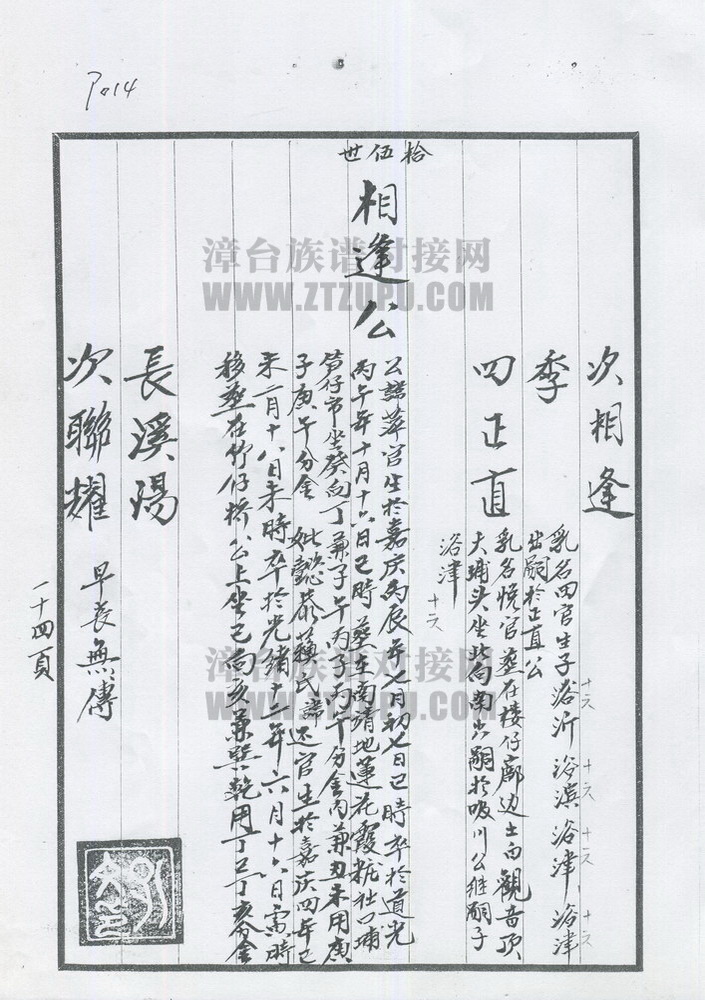 P.14
拾伍世
次相逢
乳名四官生子浴沂 浴滨 浴津 浴津
十六 十六 十六 十六
出嗣於正直公
季
四正直
乳名悦官葬在楼仔廍边土白觀音顶
大埔头坐北向南出嗣於吸川公继嗣子
浴津
十六
相逢公
公諱萍官生於嘉庆丙辰年七月初七日巳時卒於道光
丙午年十月十六日巳時葬在南靖地蓮花霞粧社口埔
笋仔市坐癸向丁兼子午丙子丙午分金内兼丑未用庚
子庚午分金 妣懿蔴蘇氏諱还官生於嘉庆四年己
未二月十八日未時卒於光緒十一年六月十六日寅時
移葬在竹仔桥公上坐巳向亥兼巽乾用丁巳丁亥分金
長溪湯
次聯耀
早丧無傳
一十四頁
漳台族谱对接网
WWW.ZTZUPU.COM
漳台族谱对接网
WWW.ZTZUPU.COM